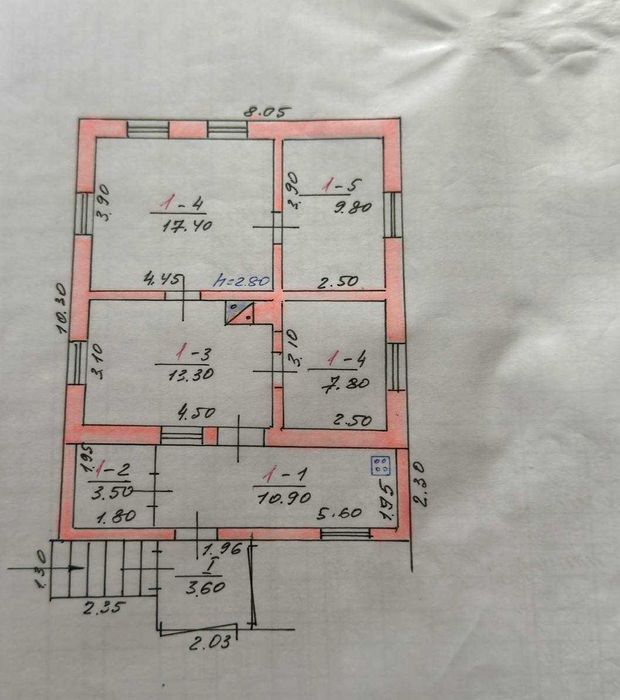 8.05
3.90
1-4
17.40
3.90
1-5
9.80
4.45
h=2.80
2.50
10.30
3.10
1-3
13.30
3.10
1-4
7.80
4.50
2.50
1.95
1-2
3.50
1.80
1-1
10.90
5.60
1.95
2.30
1.30
2.35
1.96
I
3.60
2.03